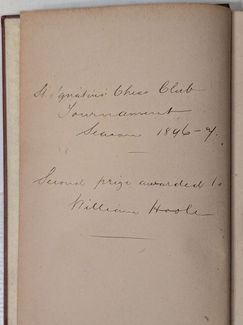 St. Ignatius Chess Club
Tournament
Season 1896-7.
Second prize awarded to
William Hoole